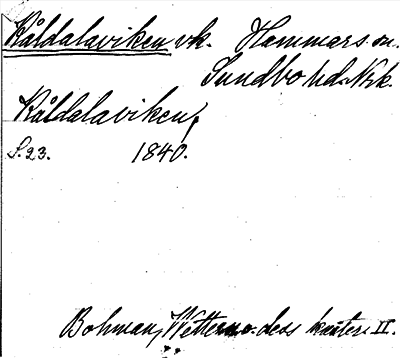 Kåldalaviken vk. Hammars sn.
Sundbo hd. Nrk.
Kåldalaviken,
S. 23. 1840.
Bohman, Wettern o. dess kuster II.